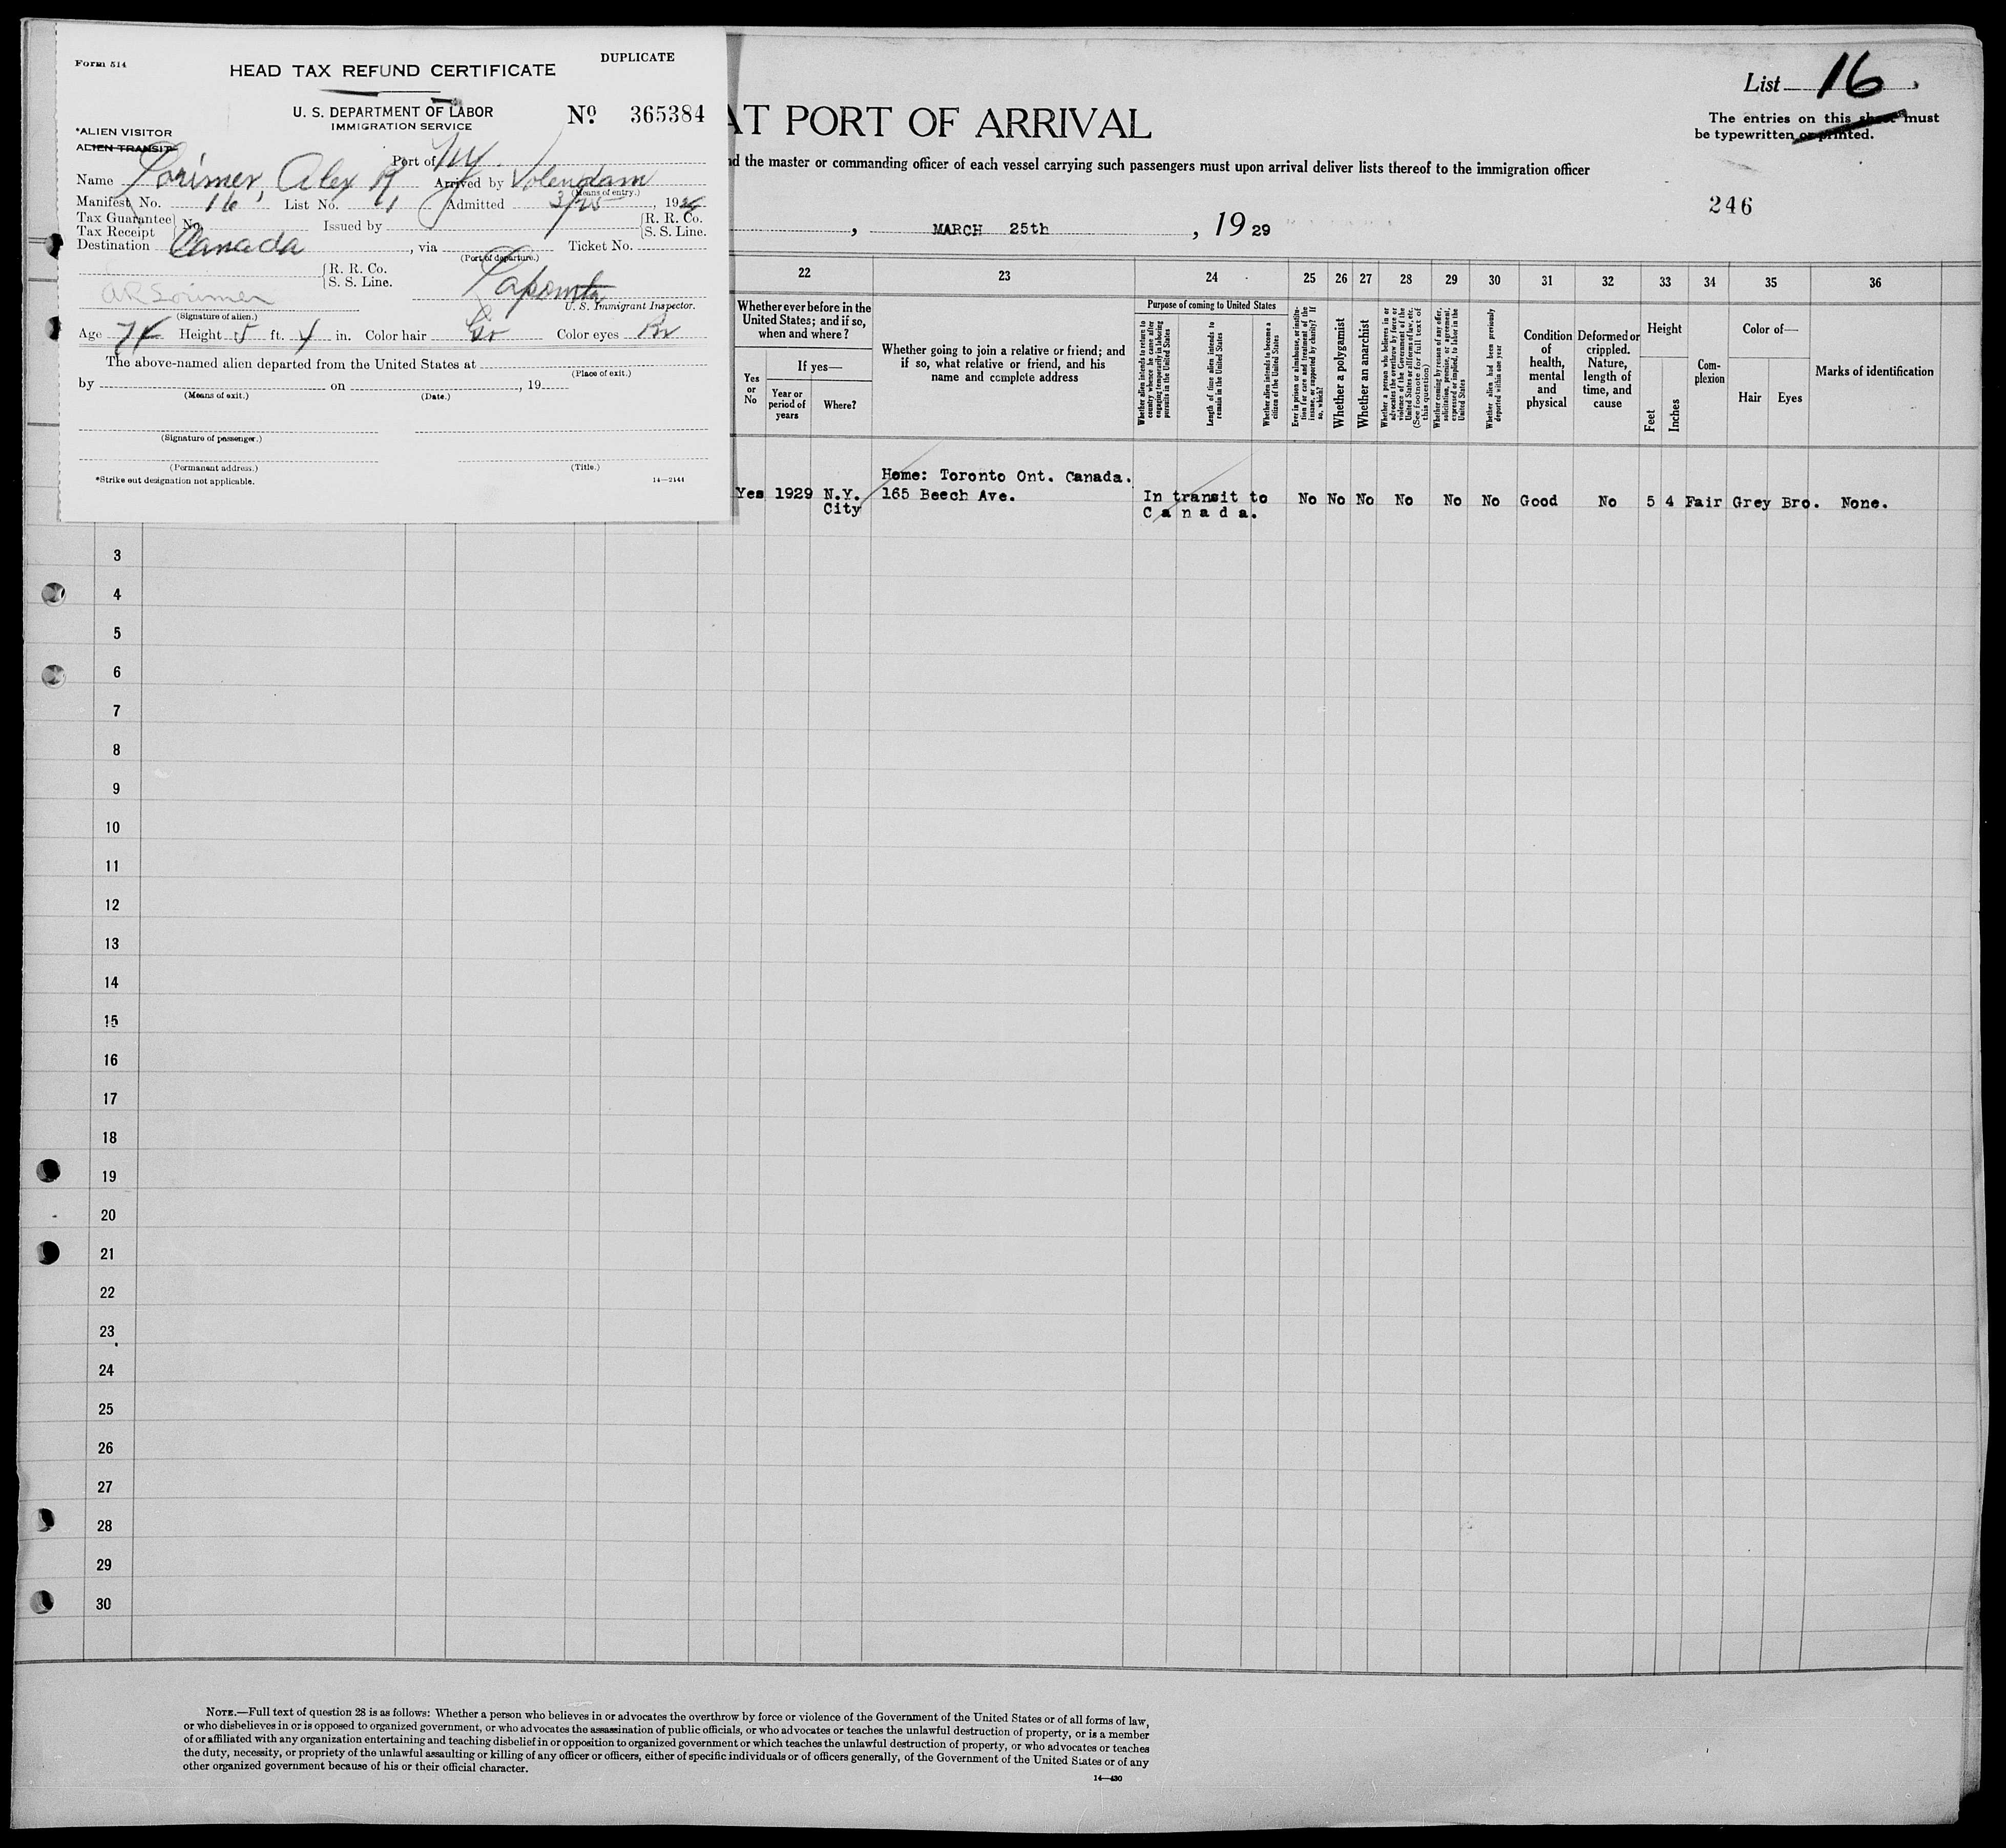 Form 514
DUPLICATE
HEAD TAX REFUND CERTIFICATE
U. S. DEPARTMENT OF LABOR
IMMIGRATION SERVICE
Nº 365384
*ALIEN VISITOR
ALIEN TRANSIT
Port of NY
Name Lorimer, Alex R Arrived by Volendam
(Means of entry.)
Manifest No. 16 List No. 1 Admitted 3/25, 1929
Tax Guarantee
Tax Receipt
No.
Issued by
R. R. Co.
S. S. Line.
Destination Canada, via Ticket No.
(Port of departure.)
R. R. Co.
S. S. Line.
AR Lorimer
(Signature of alien.)
U. S. Immigrant Inspector.
Age 74 Height 5 ft. 4 in. Color hair Color eyes Br
The above-named alien departed from the United States at
(Place of exit.)
by on , 19
(Means of exit.) (Date.)
(Signature of passenger.)
(Permanent address.) (Title.)
*Strike out designation not applicable.
14—2144
AT PORT OF ARRIVAL
List 16
The entries on this sheet must
be typewritten or printed.
nd the master or commanding officer of each vessel carrying such passengers must upon arrival deliver lists thereof to the immigration officer
246
, MARCH 25th , 1929
22 23 24 25 26 27 28 29 30 31 32 33 34 35 36
Whether ever before in the United States; and if so, when and where?
Yes or No
If yes—
Year or period of years
Where?
Whether going to join a relative or friend; and if so, what relative or friend, and his name and complete address
Purpose of coming to United States
Whether alien intends to return to country whence he came after engaging temporarily in laboring pursuits in the United States
Length of time alien intends to remain in the United States
Whether alien intends to become a citizen of the United States
Ever in prison or almshouse, or institution for care and treatment of the insane, or supported by charity? If so, which?
Whether a polygamist
Whether an anarchist
Whether a person who believes in or advocates the overthrow by force or violence of the Government of the United States or all forms of law, etc. (See footnote for full text of this question)
Whether coming by reason of any offer, solicitation, promise, or agreement, expressed or implied, to labor in the United States
Whether alien had been previously deported within one year
Condition of health, mental and physical
Deformed or crippled. Nature, length of time, and cause
Height
Feet
Inches
Complexion
Color of—
Hair Eyes
Marks of identification
Home: Toronto Ont. Canada.
Yes 1929 N.Y. 165 Beech Ave. In transit to No No No No No No Good No 5 4 Fair Grey Bro. None.
City Canada.
3
4
5
6
7
8
9
10
11
12
13
14
15
16
17
18
19
20
21
22
23
24
25
26
27
28
29
30
NOTE.—Full text of question 28 is as follows: Whether a person who believes in or advocates the overthrow by force or violence of the Government of the United States or of all forms of law,
or who disbelieves in or is opposed to organized government, or who advocates the assassination of public officials, or who advocates or teaches the unlawful destruction of property, or is a member
of or affiliated with any organization entertaining and teaching disbelief in or opposition to organized government or which teaches the unlawful destruction of property, or who advocates or teaches
the duty, necessity, or propriety of the unlawful assaulting or killing of any officer or officers, either of specific individuals or of officers generally, of the Government of the United States or of any
other organized government because of his or their official character.
14—430